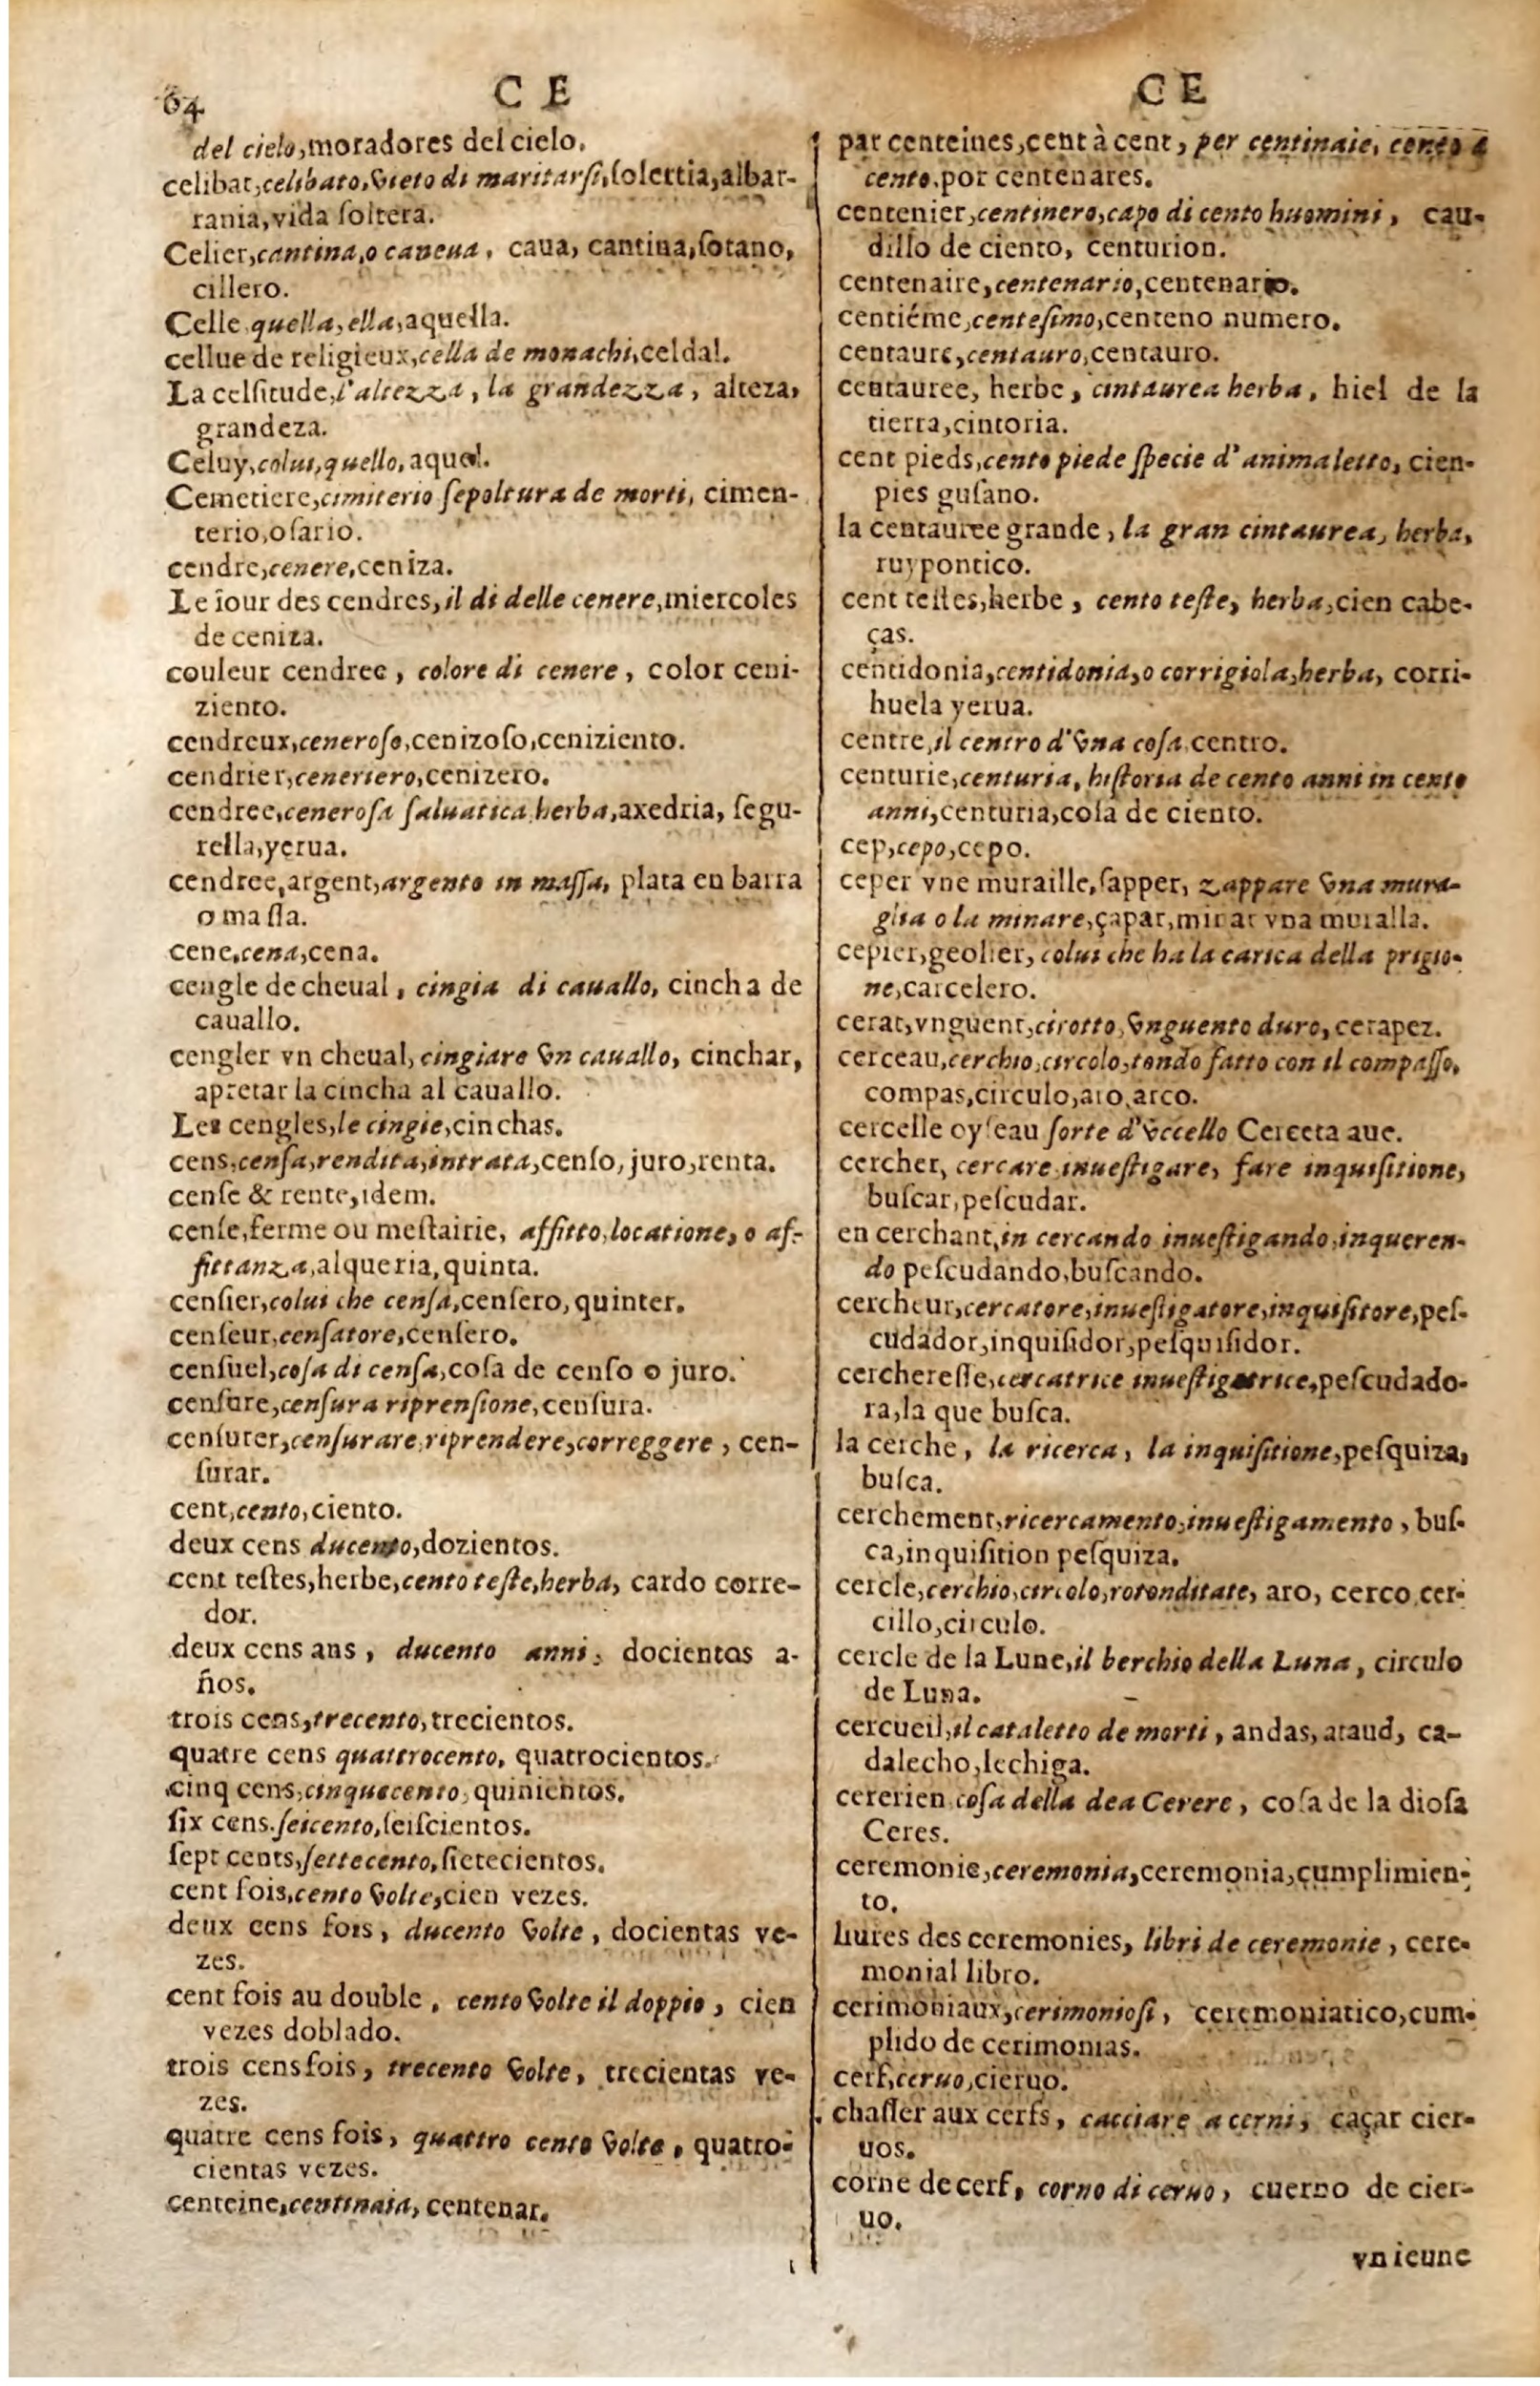 64
C E
del cielo,moradores del cielo.
celibat,celibato,vieto di maritarsi,ſolertia,albar-
rania,vida ſoltera.
Celier,cantina,o caneua, caua, cantina,ſotano,
cillero.
Celle quella,ella,aquella.
cellue de religieux,cella de monachi,celdal.
La celſitude,l'altezza, la grandezza, alteza,
grandeza.
Celuy,colui,quello,aquel.
Cemetiere,cimiterio ſepoltura de morti, cimen-
terio,oſario.
cendre,cenere,ceniza.
Le iour des cendres,il di delle cenere,miercoles
de ceniza.
couleur cendree, colore di cenere, color ceni-
ziento.
cendreux,ceneroſo,cenizoſo,ceniziento.
cendrier,ceneriero,cenizero.
cendree,ceneroſa ſaluatica herba,axedria, ſegu-
rella,yerua.
cendree,argent,argento in maſſa, plata en barra
o maſſa.
cene,cena,cena.
cengle de cheual, cingia di cauallo, cincha de
cauallo.
cengler vn cheual,cingiare vn cauallo, cinchar,
apretar la cincha al cauallo.
Les cengles,le cingie,cinchas.
cens,cenſa,rendita,intrata,cenſo,juro,renta.
cenſe & rente,idem.
cenſe,ferme ou meſtairie, affitto,locatione, o af-
fittanza,alqueria,quinta.
cenſier,colui che cenſa,cenſero,quinter.
cenſeur,cenſatore,cenſero.
cenſuel,coſa di cenſa,coſa de cenſo o juro.
cenſure,cenſura riprenſione,cenſura.
cenſurer,cenſurare,riprendere,correggere, cen-
ſurar.
cent,cento,ciento.
deux cens ducento,dozientos.
cent teſtes,herbe,cento teſte,herba, cardo corre-
dor.
deux cens ans, ducento anni, docientos a-
ños.
trois cens,trecento,trecientos.
quatre cens quattrocento, quatrocientos.
cinq cens,cinquecento,quinientos.
ſix cens.ſeicento,ſeiſcientos.
ſept cents,ſettecento,ſietecientos.
cent fois,cento volte,cien vezes.
deux cens fois, ducento volte, docientas ve-
zes.
cent fois au double, cento volte il doppio, cien
vezes doblado.
trois cens fois, trecento volte, trecientas ve-
zes.
quatre cens fois, quattro cento volte, quatro-
cientas vezes.
centeine,centinaia, centenar.
C E
par centeines,cent à cent, per centinaie, cento a
cento,por centenares.
centenier,centinero,capo di cento huomini, cau-
dillo de ciento, centurion.
centenaire,centenario,centenario.
centiéme,centeſimo,centeno numero.
centaure,centauro,centauro.
centauree, herbe, cintaurea herba, hiel de la
tierra,cintoria.
cent pieds,cento piede ſpecie d'animaletto, cien-
pies guſano.
la centauree grande, la gran cintaurea, herba,
ruypontico.
cent teſtes,herbe, cento teſte, herba,cien cabe-
ças.
centidonia,centidonia,o corrigiola,herba, corri-
huela yerua.
centre,il centro d'vna coſa,centro.
centurie,centuria, hiſtoria de cento anni in cento
anni,centuria,coſa de ciento.
cep,cepo,cepo.
ceper vne muraille,ſapper, zappare vna mura-
glia o la minare,çapar,minar vna muralla.
cepier,geolier, colui che ha la carica della prigio-
ne,carcelero.
cerat,vnguent,cirotto,vnguento duro,cerapez.
cerceau,cerchio,circolo,tondo fatto con il compaſſo,
compas,circulo,aro,arco.
cercelle oyſeau ſorte d'vccello Cerceta aue.
cercher, cercare inueſtigare, fare inquiſitione,
buſcar,peſcudar.
en cerchant,in cercando inueſtigando,inqueren-
do peſcudando,buſcando.
cercheur,cercatore,inueſtigatore,inquiſitore,peſ-
cudador,inquiſidor,peſquiſidor.
cerchereſſe,cercatrice inueſtigatrice,peſcudado-
ra,la que buſca.
la cerche, la ricerca, la inquiſitione,peſquiza,
buſca.
cerchement,ricercamento,inueſtigamento, buſ-
ca,inquiſition peſquiza.
cercle,cerchio,circolo,rotonditate, aro, cerco cer-
cillo,circulo.
cercle de la Lune,il berchio della Luna, circulo
de Luna.
cercueil,il cataletto de morti, andas,ataud, ca-
dalecho,lechiga.
cererien coſa della dea Cerere, coſa de la dioſa
Ceres.
ceremonie,ceremonia,ceremonia,cumplimien-
to.
liures des ceremonies, libri de ceremonie, cere-
monial libro.
cerimoniaux,cerimonioſi, ceremoniatico,cum-
plido de cerimonias.
cerf,ceruo,cieruo.
chaſſer aux cerfs, cacciare a cerni, caçar cier-
uos.
corne de cerf, corno di ceruo, cuerno de cier-
uo.
vn ieune